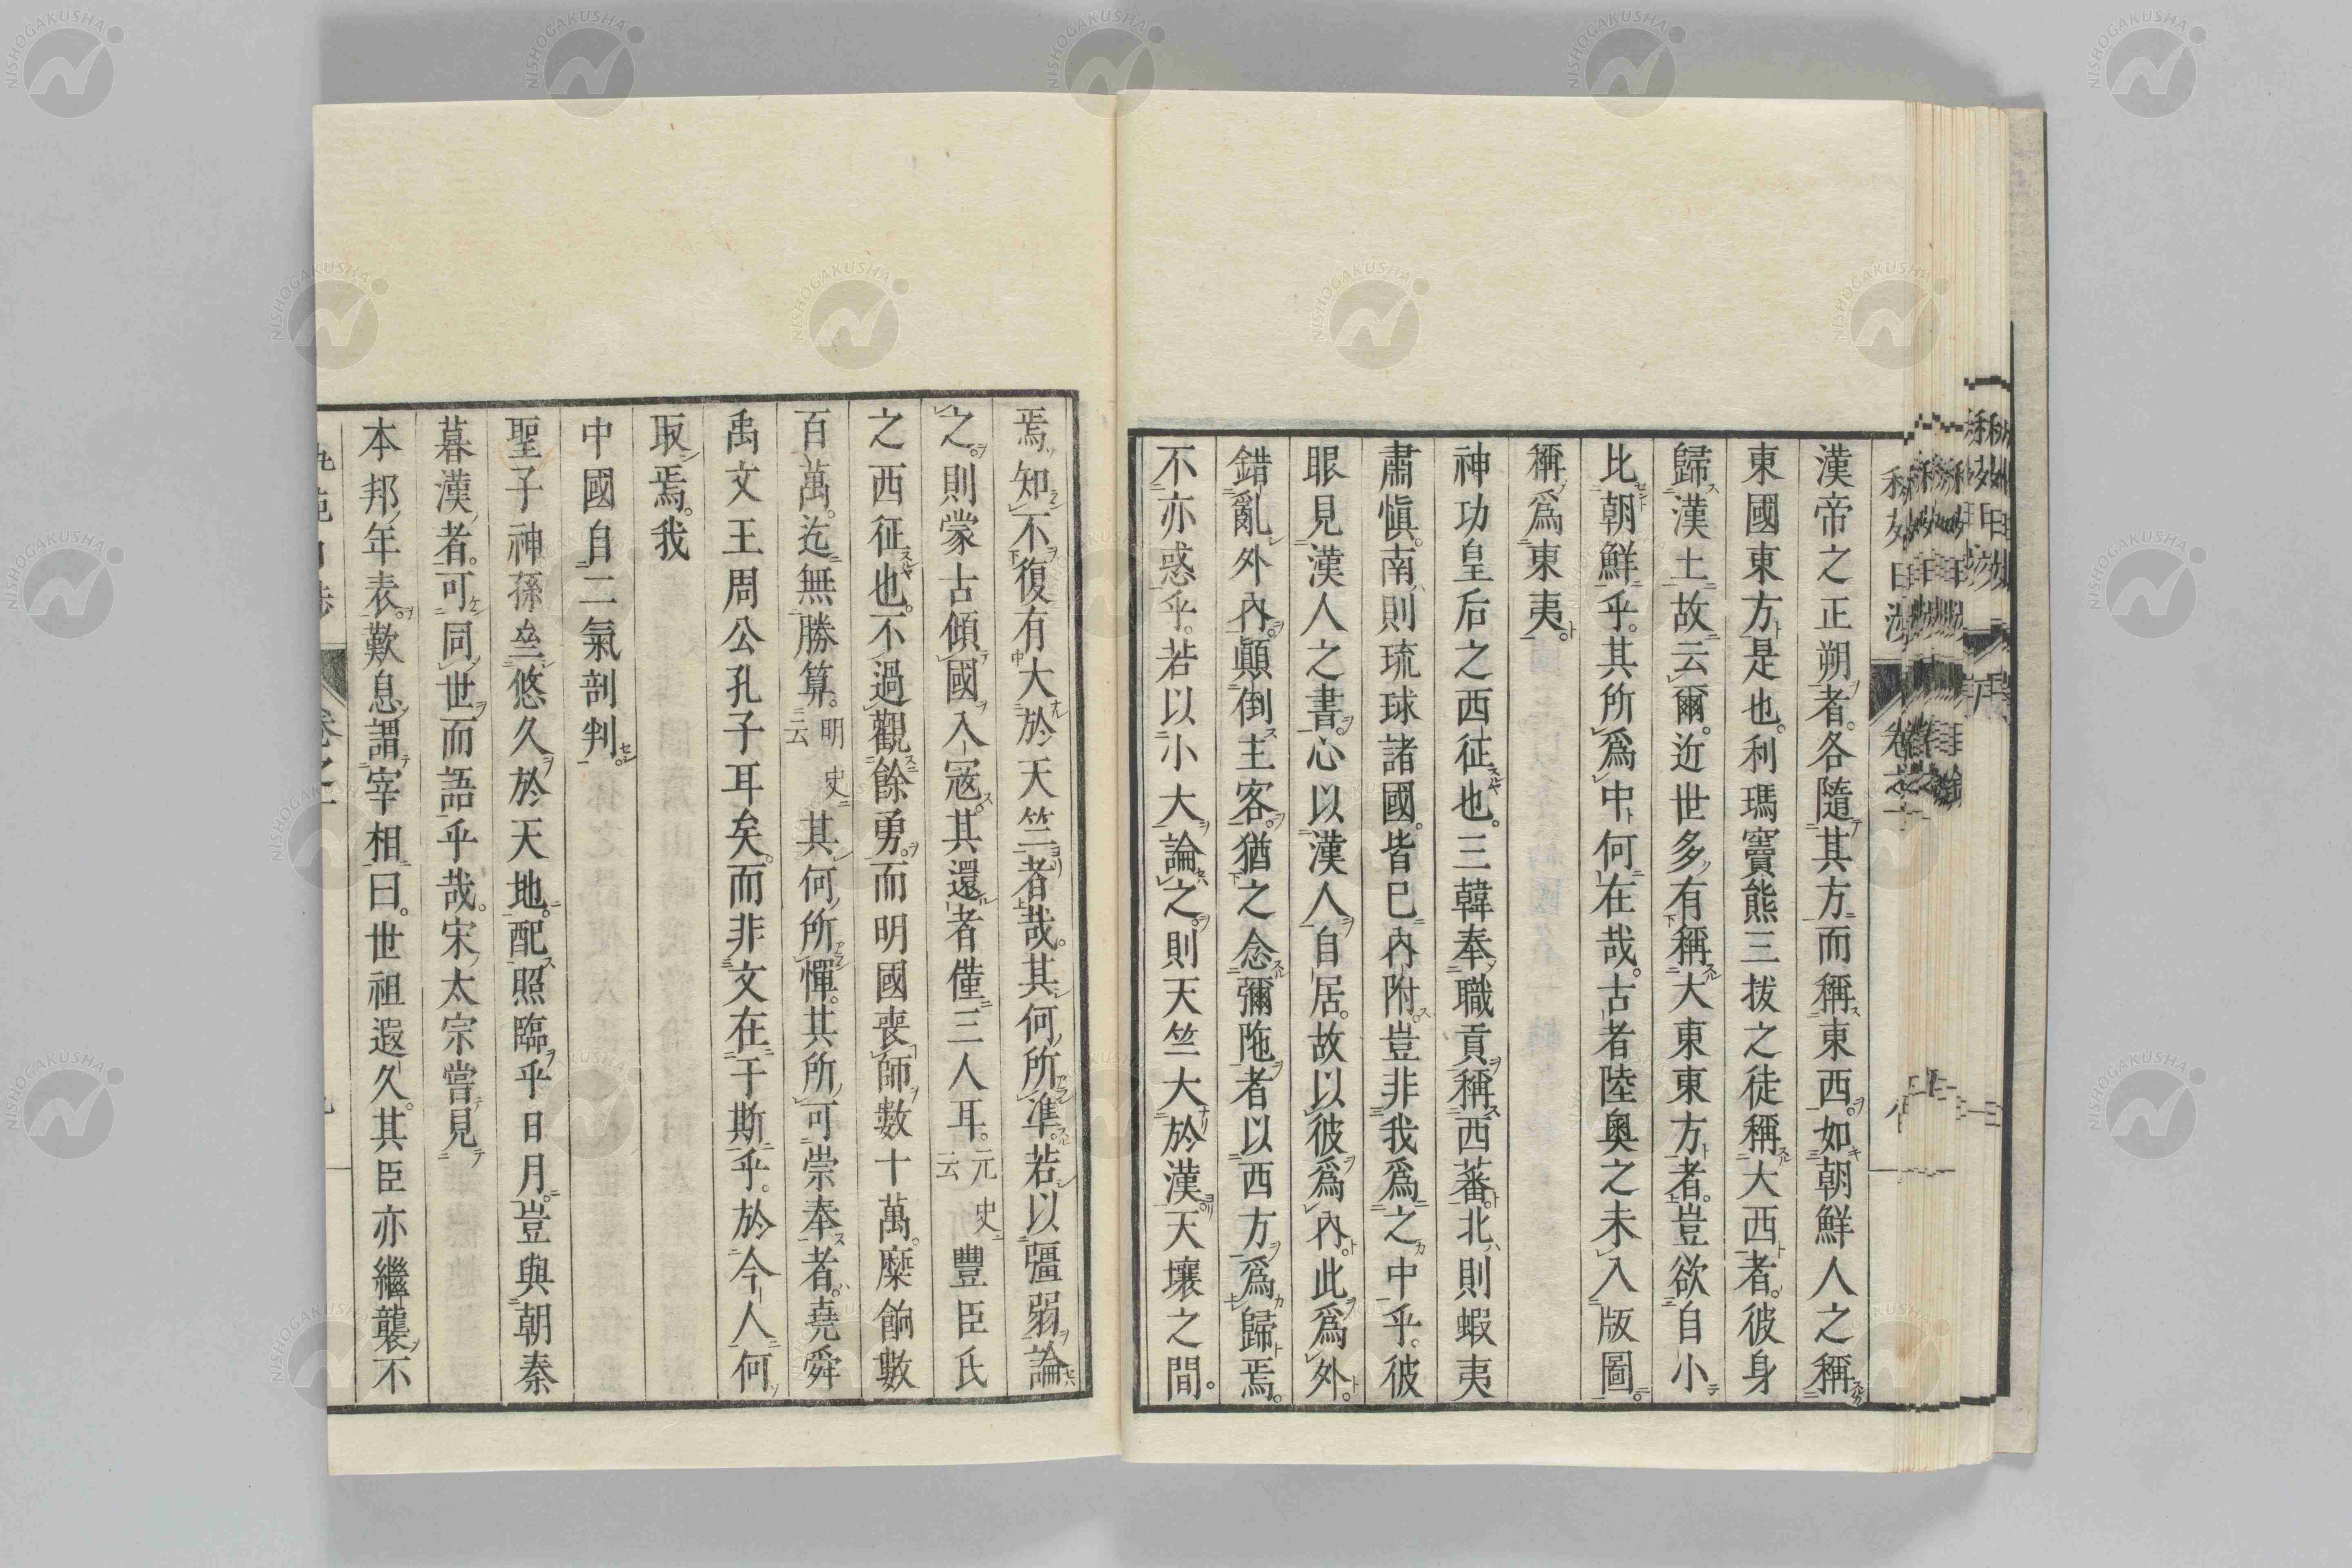 漢帝之正朔者。各隨其方而稱東西。如朝鮮人之稱
東國東方是也。利瑪竇熊三拔之徒稱大西者。彼身
歸漢土故云爾。近世多有稱大東東方者。豈欲自小
比朝鮮乎。其所爲中何在哉。古者陸奧之未入版圖。
稱爲東夷。
神功皇后之西征也。三韓奉職貢稱西蕃。北則蝦夷
肅愼。南則琉球諸國。皆已內附。豈非我爲之中乎。彼
眼見漢人之書。心以漢人自居。故以彼爲內。此爲外。
錯亂外內。顚倒主客。猶之念彌陁者以西方爲歸焉。
不亦惑乎。若以小大論之。則天竺大於漢天壤之間。
焉知不復有大於天竺者哉。其何所準。若以彊弱論
之。則蒙古傾國入寇。其還者僅三人耳。元史云豐臣氏
之西征也。不過觀餘勇。而明國喪師數十萬。糜餉數
百萬。迄無勝算。明史云其何所憚。其所可崇奉者。堯舜
禹文王周公孔子耳矣。而非文在于斯乎。於今人何
取焉。我
中國自二氣剖判。
聖子神孫垒悠久於天地。配照臨乎日月。豈與朝秦
暮漢者。可同世而語乎哉。宋太宗嘗見
本邦年表。歎息謂宰相曰。世祖遐久。其臣亦繼襲不
卷之一
NISHOGAKUSHA